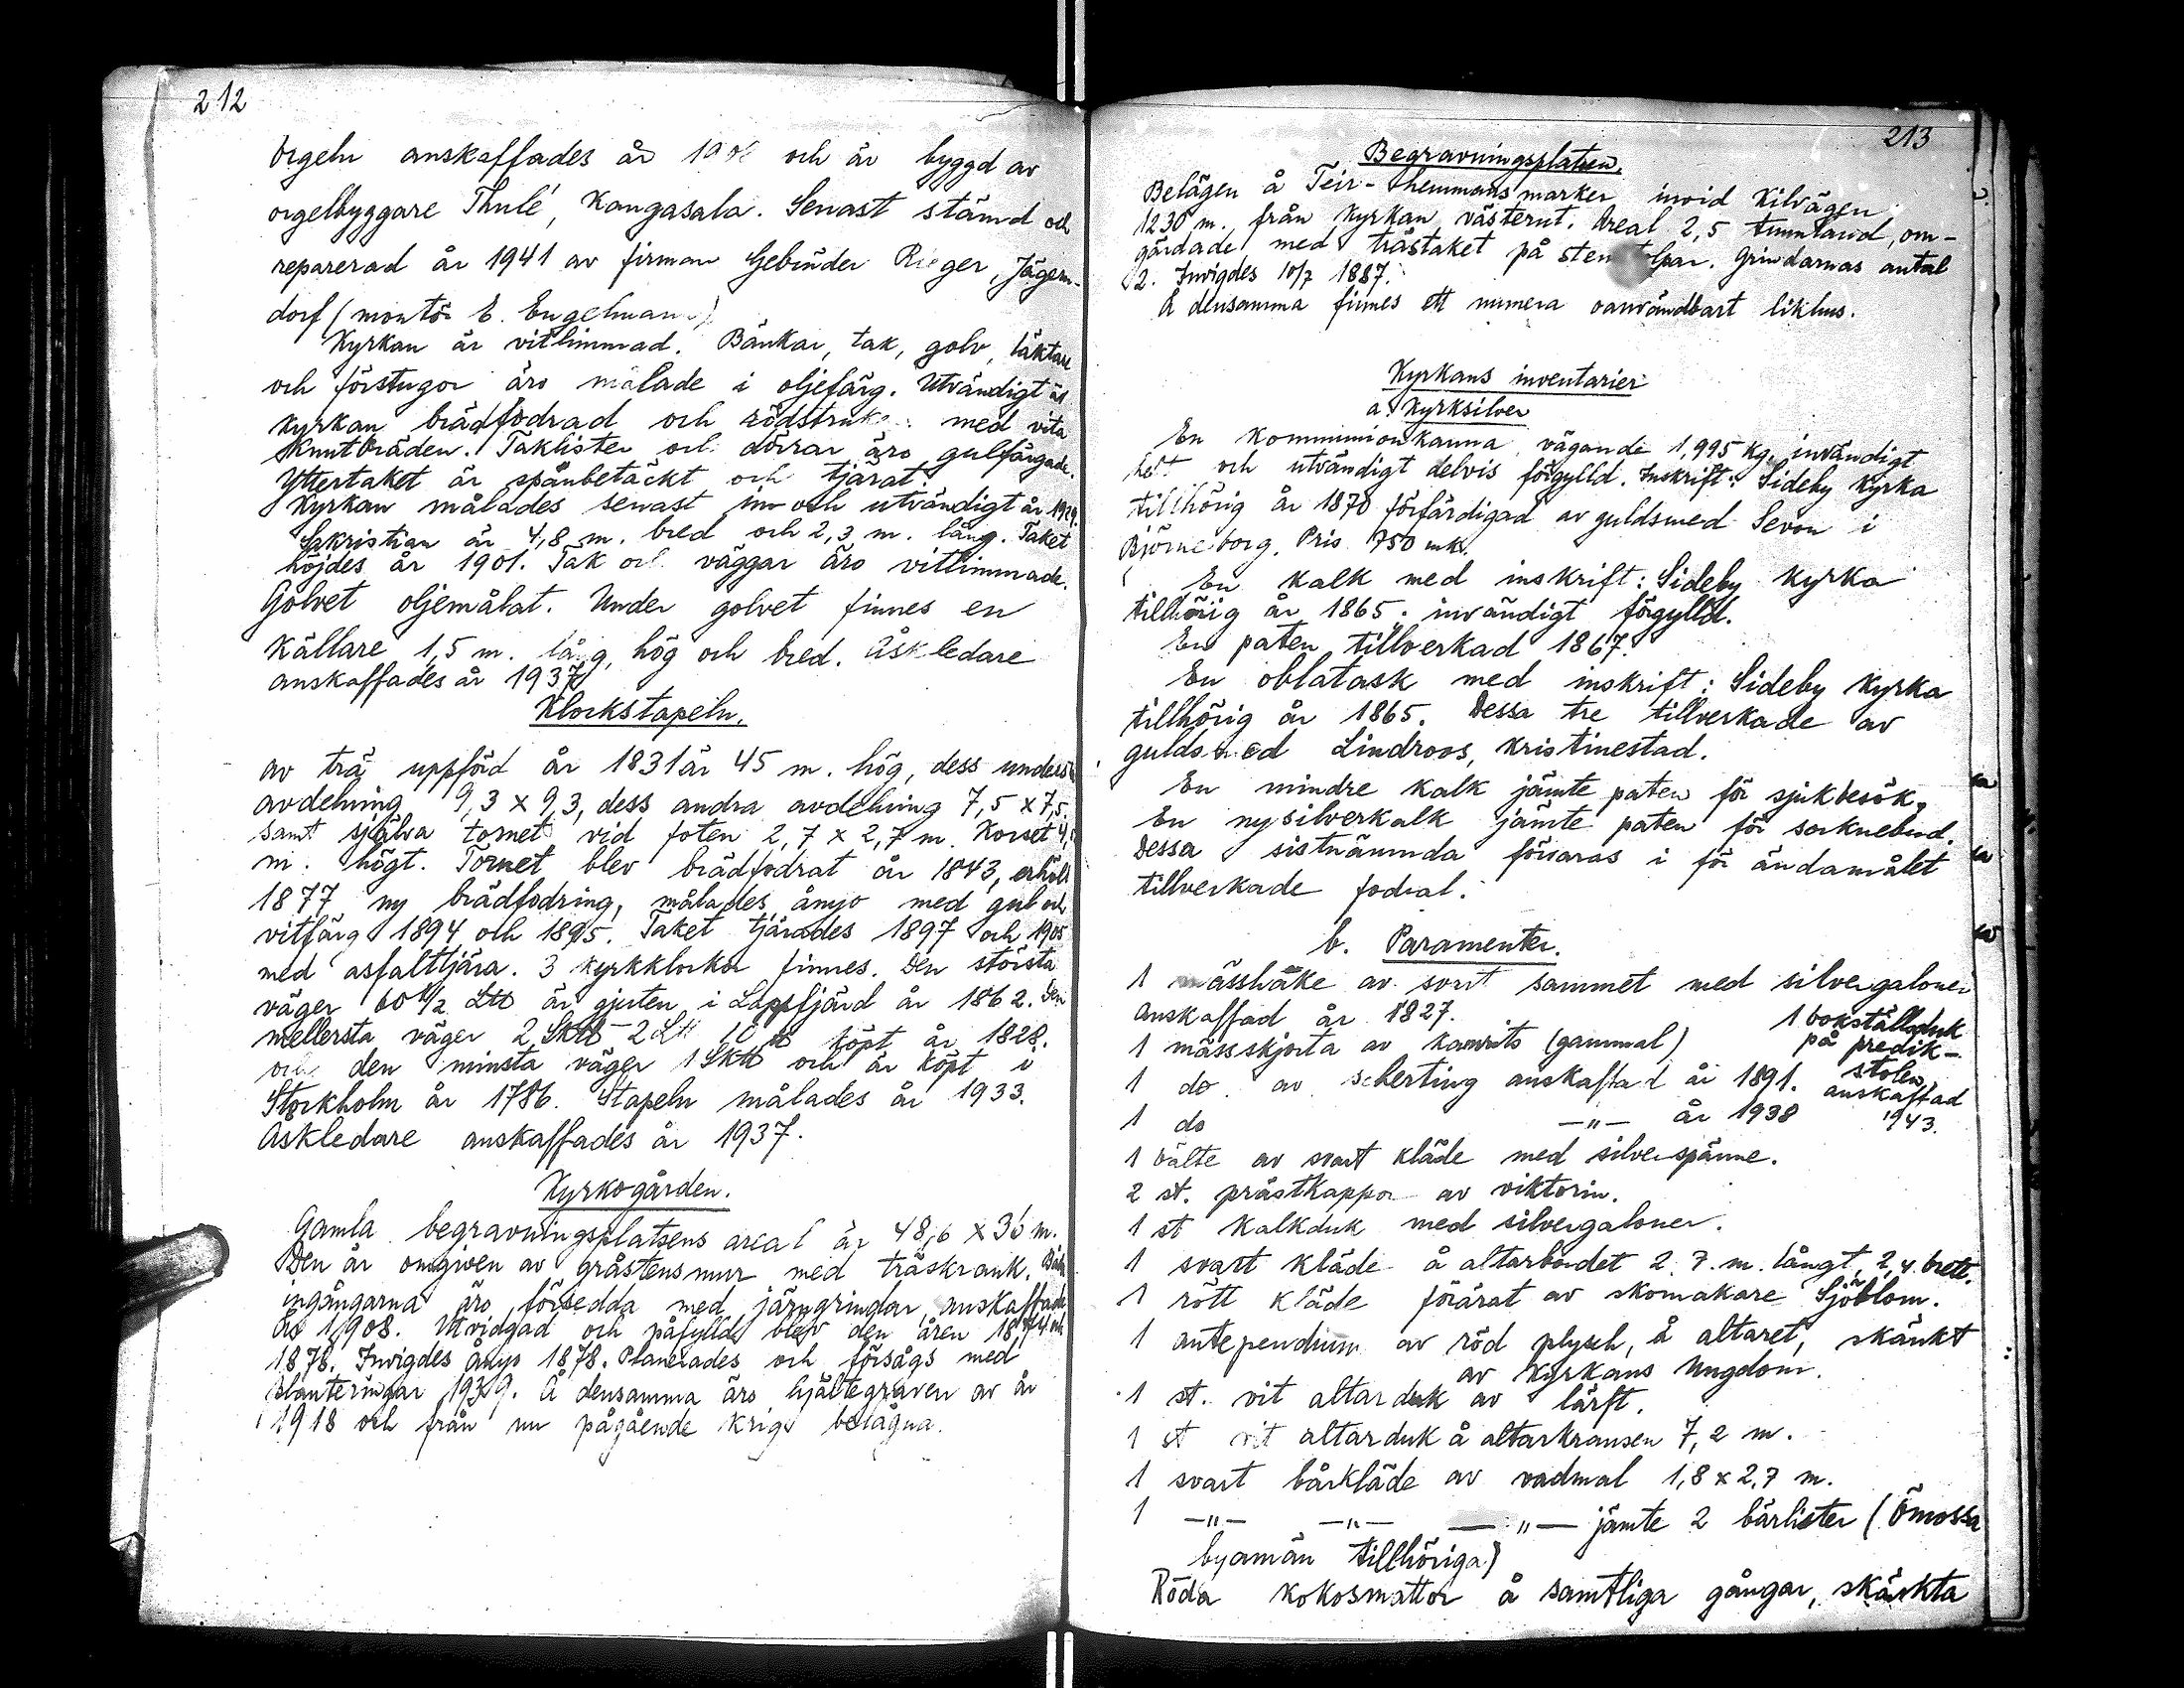 212
Orgeln anskaffades år och är byggd av
orgelbyggare Thulé, Kangasala. Senast stämd och
reparerad år 1941 av firman Gebrüder Rieger, Jägern-
dorf (montör E. Engelmann)
Kyrkan är vitlimmad. Bänkar, tak, golv, läktare
och förstugor äro målade i oljefärg. Utvändigt är
kyrkan brädfodrad och rödstruken med vita
knutbräden. Taklister och dörrar äro gulfärgade.
Yttertaket är spånbetäckt och tjärat.
Kyrkan målades senast in och utvändigt år 1929.
Sakristian är 4,8 m. bred och 2,3 m. lång. Taket
höjdes år 1901. Tak och väggar äro vitlimmade.
Golvet oljemålat. Under golvet finnes en
källare 1,5 m. lång, hög och bred. Åskledare
anskaffades år 1937
Klockstapeln.
av trä uppförd år 1831 är 45 m. hög, dess understa
avdelning 9,3 x 9,3, dess andra avdelning 7,5 x 7,5,
samt själva tornet vid foten 2,7 x 2,7 m. Korset
m. högt. Tornet blev brädfodrat år 1843, erhöll
1877 ny brädfodring, målades ånyo med gul och
vitfärg 1894 och 1895. Taket tjärades 1897 och 1905
med asfalttjära. 3 kyrkklockor finnes. Den största
väger 60 1/2 L℔ är gjuten i Lappfjärd år 1862. Den
mellersta väger 2 Sk℔ 2 L℔ 10 ℔ köpt år 1828.
och den minsta väger 1 Sk℔ och är köpt i
Stockholm år 1786. Stapeln målades år 1933.
Åskledare anskaffades år 1937.
Kyrkogården.
Gamla begravningsplatsens areal är 48,6 x 36 m.
Den är omgiven av gråstensmur med träskrank. Båda
ingångarna äro försedda med järngrindar, anskaffade
år 1908. Utvidgad och påfylld blev den åren 1874 och
1878. Invigdes ånyo 1878. Planerades och försågs med
planteringar 1939. Å densamma äro hjältegraven av år
1918 och från nu pågående krig belägna.
213
Begravningsplatsen.
Belägen å Teir-hemmans marker invid Kilvägen
1230 m. från kyrkan västerut. Areal 2,5 tunnland, om-
gärdade med trästaket på stenstolpar. Grindarnas antal
2. Invigdes 10/7 1887.
Å densamma finnes ett numera oanvändbart likhus.
Kyrkans inventarier
a. Kyrksilver
En kommunionkanna vägande 1,995 kg, invändigt
helt och utvändigt delvis förgylld. Inskrift: Sideby Kyrka
tillhörig år 1870 förfärdigad av guldsmed Sevon i
Björneborg. Pris 750 mk.
En kalk med inskrift: Sideby Kyrka
tillhörig år 1865; invändigt förgylld.
En paten tillverkad 1867.
En oblatask med inskrift: Sideby Kyrka
tillhörig år 1865. Dessa tre tillverkade av
guldsmed Lindroos, Kristinestad.
En mindre kalk jämte paten för sjukbesök.
En nysilverkalk jämte paten för sockenbud.
Dessa sistnämnda förvaras i för ändamålet
tillverkade fodral.
b. Paramenter.
1 mässhake av svart sammet med silvergaloner
anskaffad år 1827.
1 mässkjorta av (gammal)
1 do. av scherting anskaffad år 1891.
1 do —"— år 1938
1 bokställsduk
på predik-
stolen,
anskaffad
1943.
1 bälte av svart kläde med silverspänne.
2 st. prästkappor av viktorin.
1 st kalkduk med silvergaloner.
1 svart kläde å altarbordet 2.7. m. långt, 2,4 brett.
1 rött kläde förärat av skomakare Sjöblom.
1 antependium av röd plysch, å altaret, skänkt
av Kyrkans Ungdom.
1 st. vit altarduk av lärft.
1 st vit altarduk å altarkransen 7,2 m.
1 svart bårkläde av vadmal 1,8 x 2,7 m.
1 —"— —"— —"— jämte 2 bärlister (Ömossa
byamän tillhöriga)
Röda kokosmattor å samtliga gångar, skänkta